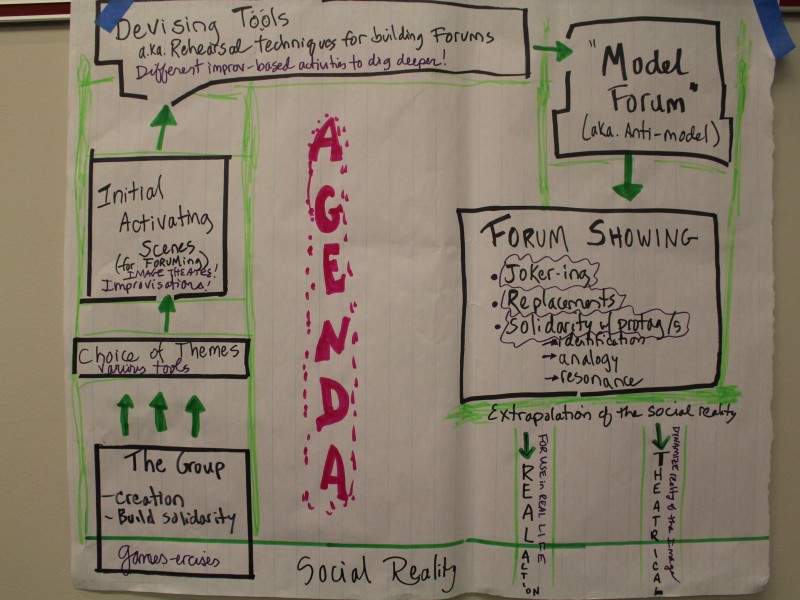 Devising Tools
a.k.a. Rehearsal techniques for building Forums
Different improv-based activities to dig deeper!
"Model
Forum"
(aka. Anti-model)
AGENDA
Initial
Activating
Scenes
(for FORUMing)
IMAGE THEATRE!
Improvisations!
FORUM SHOWING
• Joker-ing
• Replacements
• Solidarity w/ protag/s
→ identification
→ analogy
→ resonance
Choice of Themes
various tools
Extrapolation of the social reality
The Group
- creation
- Build solidarity
games-ercises
REAL ACTION
FOR USE in REAL LIFE
THEATRICAL
DYNAMIZE reality of the Image
Social Reality